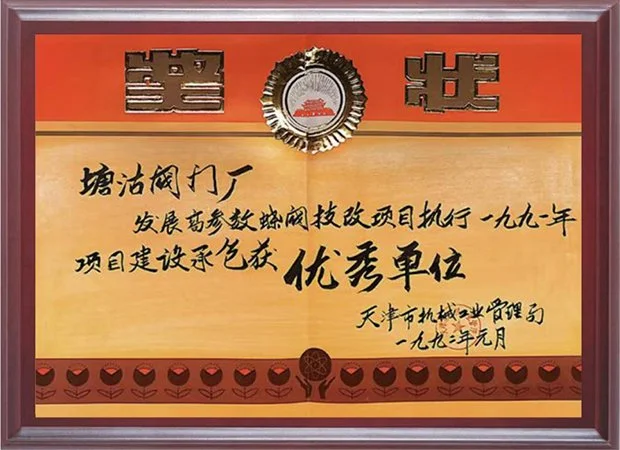 奖状
塘沽阀门厂
发展高参数蝶阀技改项目执行一九九一年
项目建设承包获 优秀单位
天津市机械工业管理局
一九九二年元月